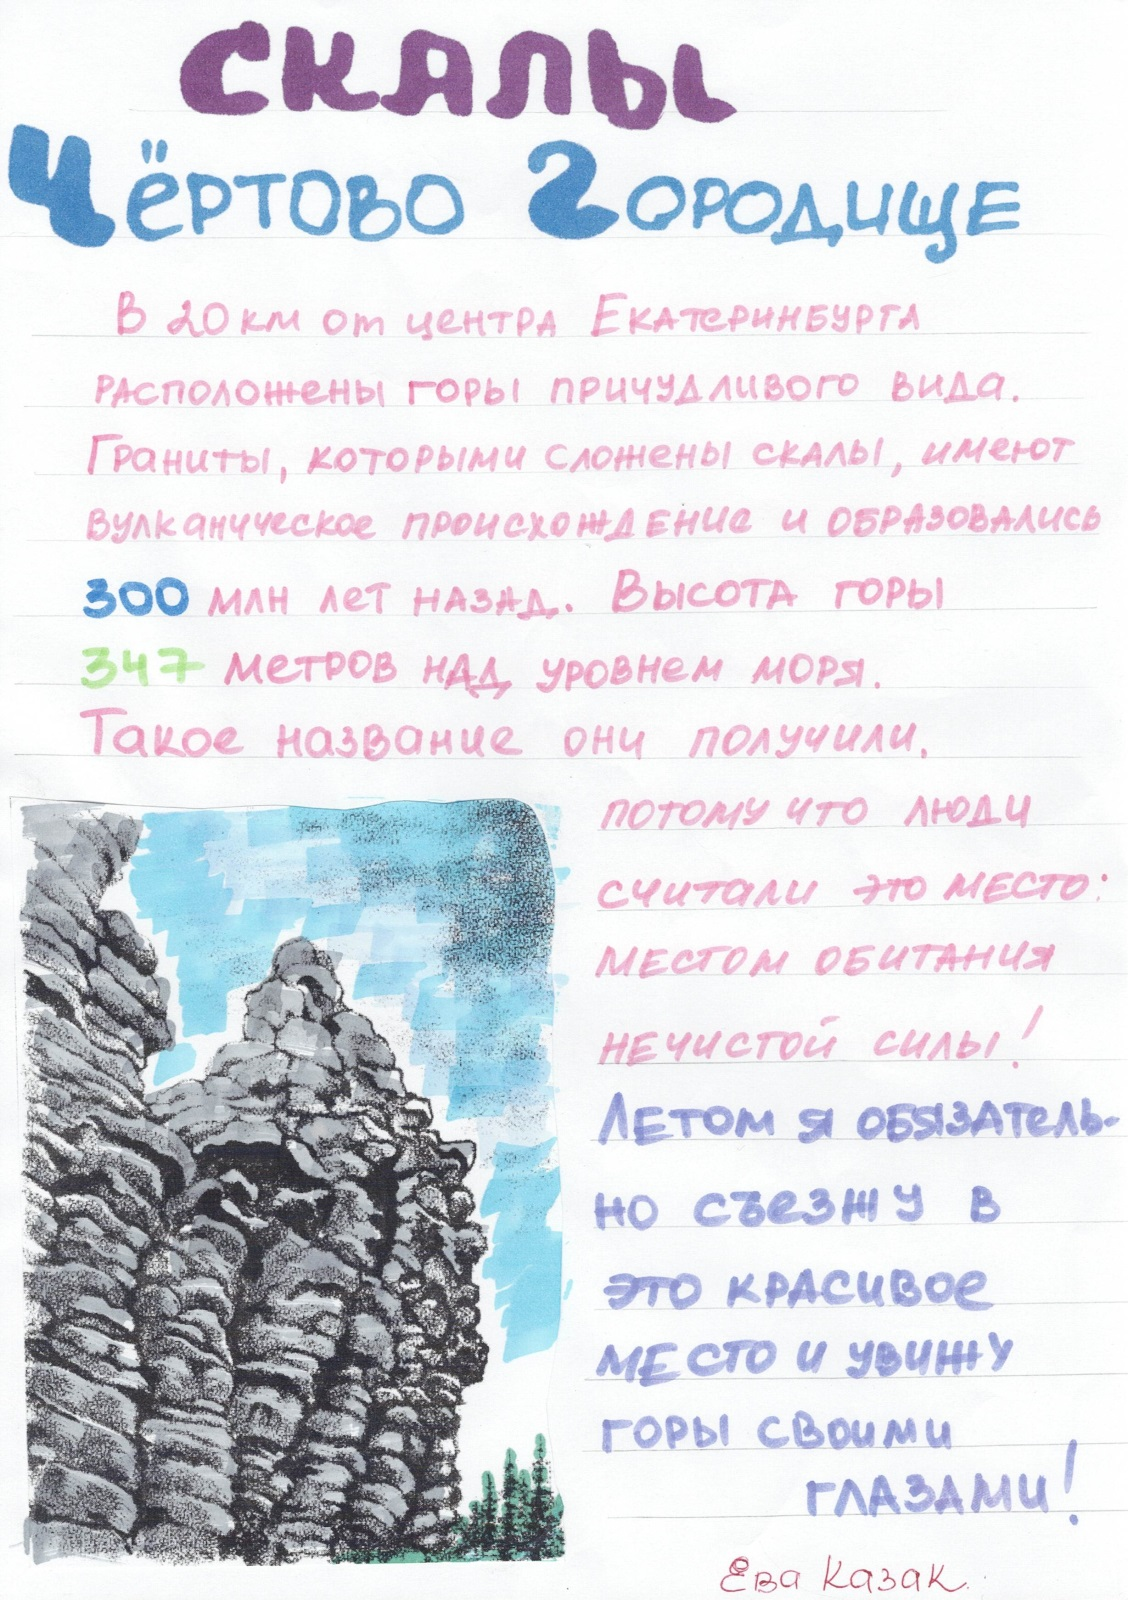 СКАЛЫ
ЧЁРТОВО ГОРОДИЩЕ
В 20 км от центра Екатеринбурга
расположены горы причудливого вида.
Граниты, которыми сложены скалы, имеют
вулканическое происхождение и образовались
300 млн лет назад. Высота горы
347 метров над уровнем моря.
Такое название они получили,
потому что люди
считали это место:
местом обитания
нечистой силы!
Летом я обязатель-
но съезжу в
это красивое
место и увижу
горы своими
глазами!
Ева Казак.